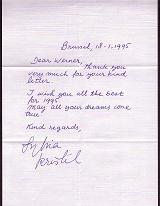 Brussel, 18-1, 1995
Dear Werner, thank you
very much for your kind
letter.
I wish you all the best
for 1995
may all your dreams come
true!
Kind regards,
Sylvia
Kristel